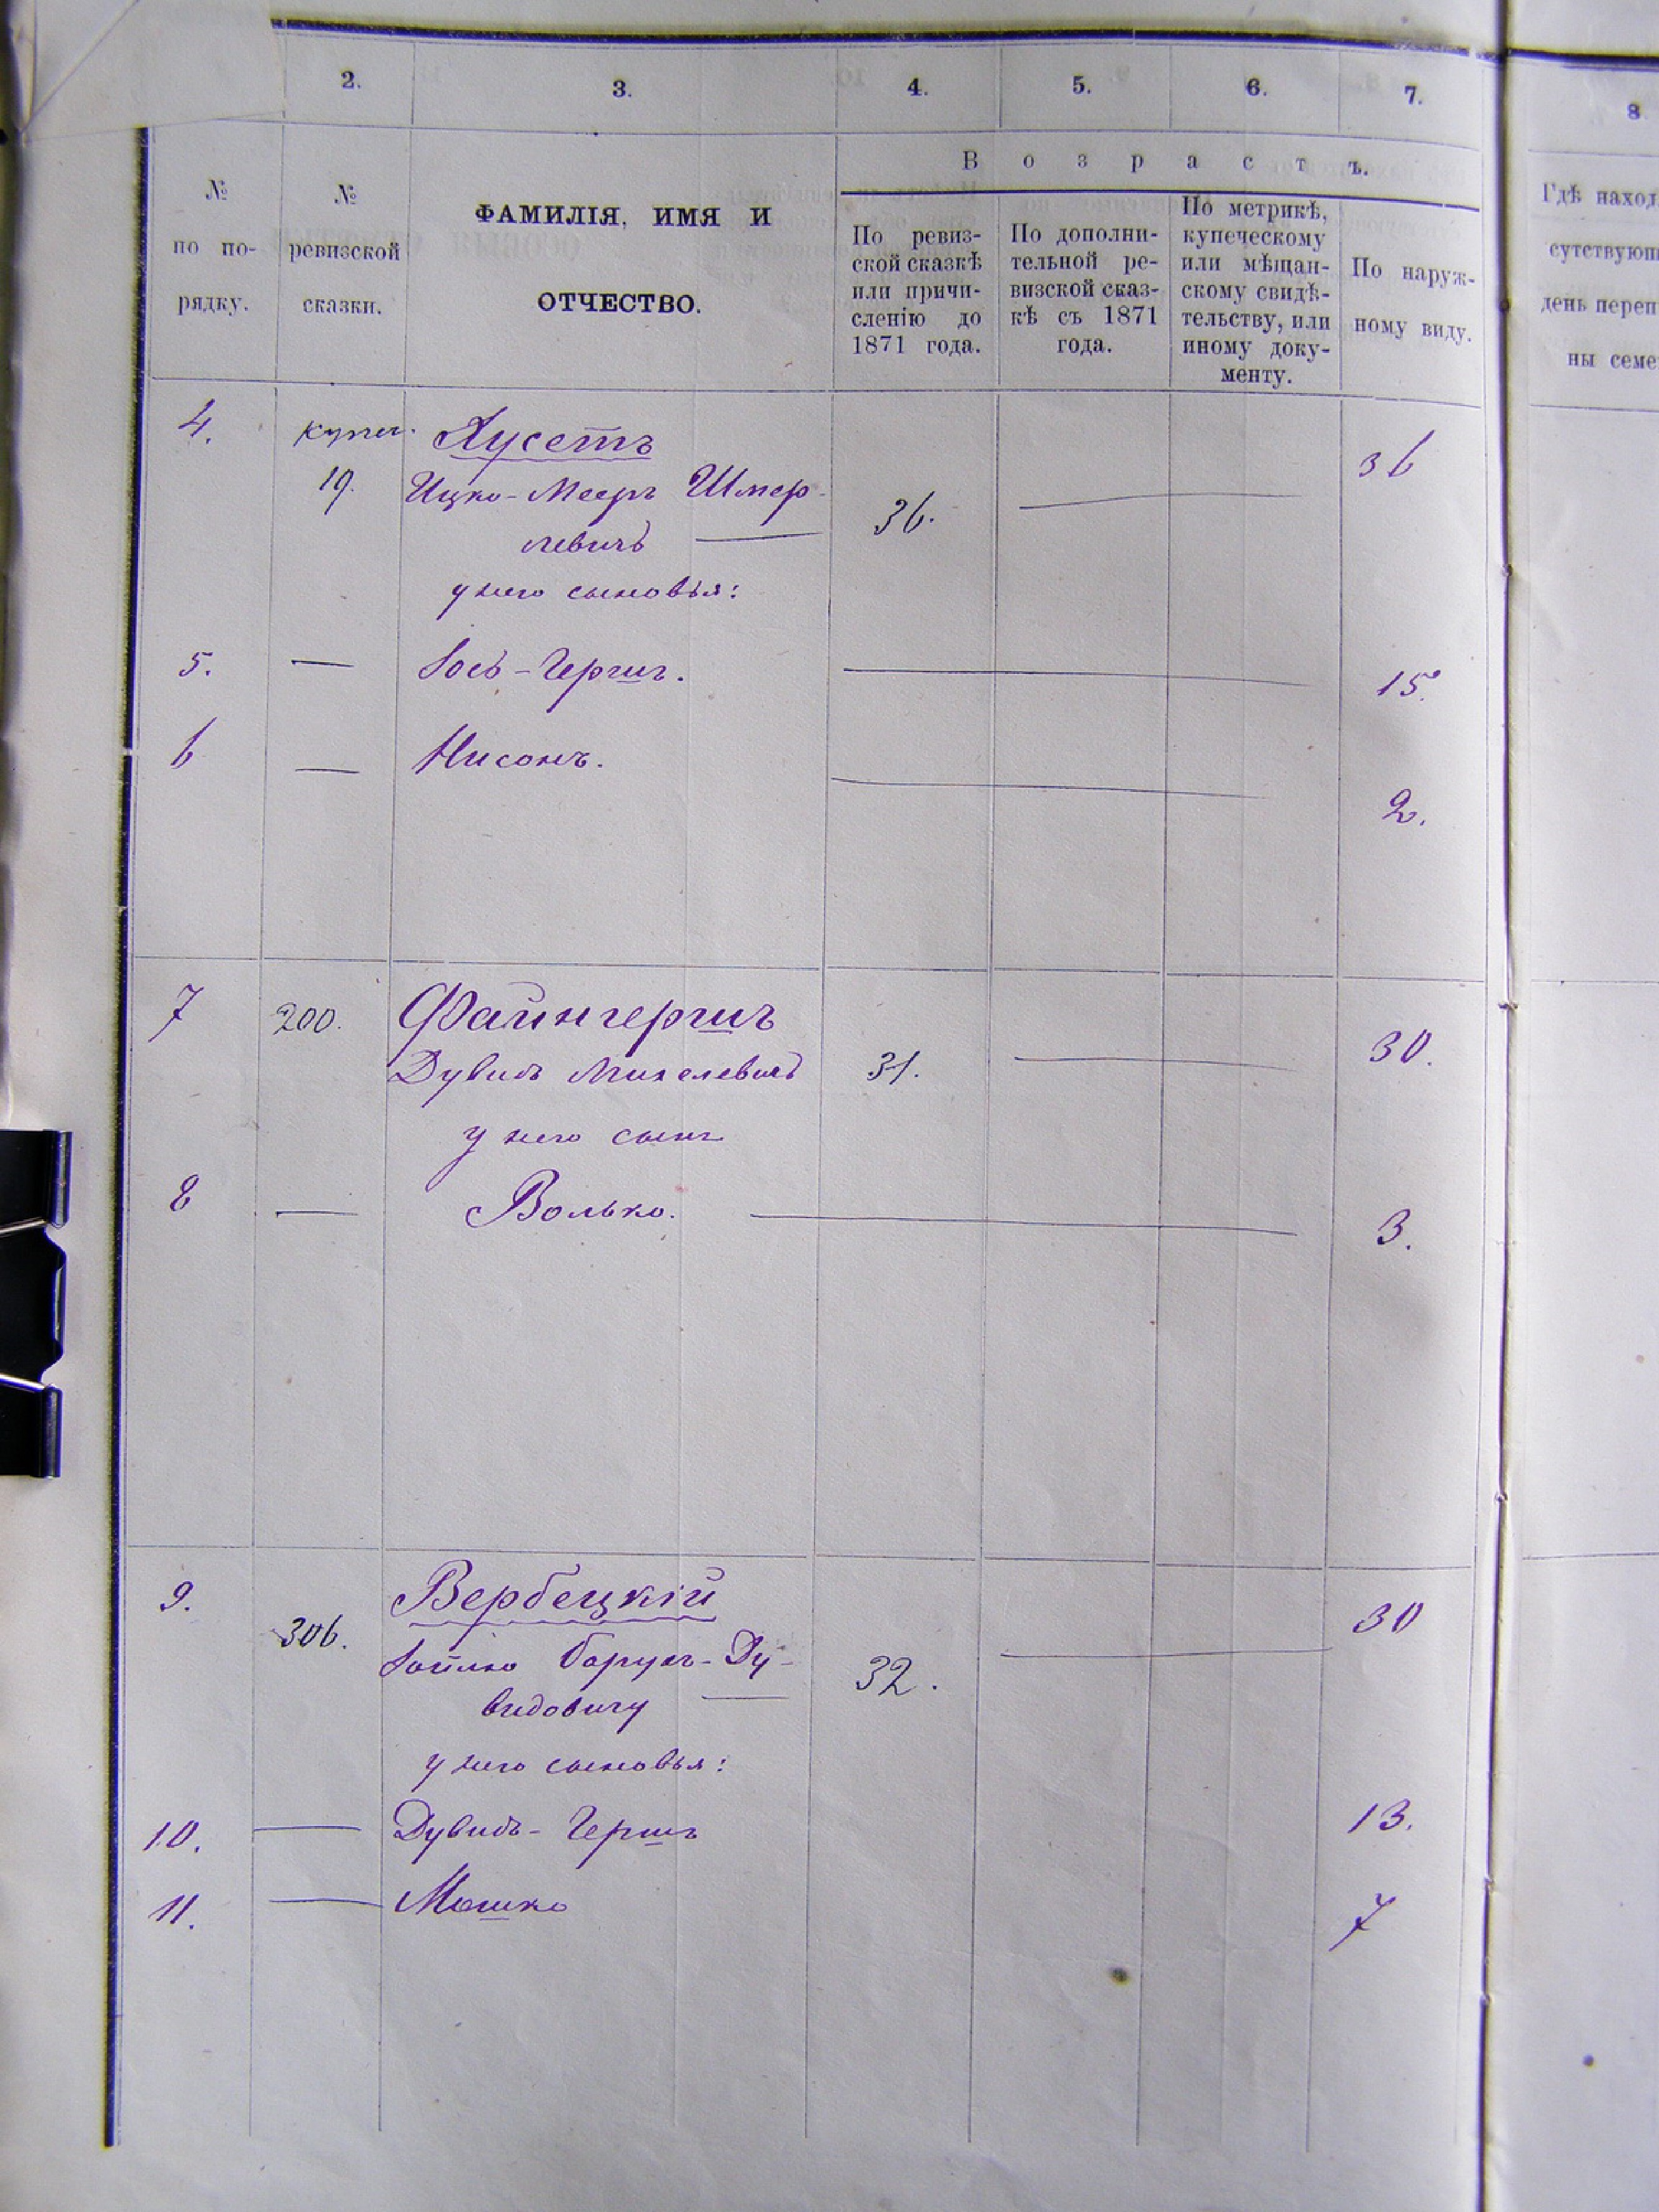 2. 3. 4. 5. 6. 7. 8
В о з р а с т ъ.
№
по по-
рядку.
№
ревизской
сказки.
ФАМИЛІЯ, ИМЯ И
ОТЧЕСТВО.
По ревиз-
ской сказкѣ
или причи-
сленію до
1871 года.
По дополни-
тельной ре-
визской сказ-
кѣ съ 1871
года.
По метрикѣ,
купеческому
или мѣщан-
скому свидѣ-
тельству, или
иному доку-
менту.
По наруж-
ному виду.
Гдѣ наход
сутствующ
день переп
ны семе
4. купеч. Хусетъ 36
19. Ицко-Мееръ Шмер- 36.
левичъ
у него сыновья:
5. — Іось-Гершъ. 15.
6 — Нисонъ. 2.
7 200. Файнгершъ 30.
Дувидъ Михелевичъ 31.
у него сынъ
8 — Волько. 3.
9. Вербецкій 30
306. Барухъ-Ду- 32.
видовичу
у него сыновья:
10. — Дувидъ-Гершъ 13.
11. — Мошко 7